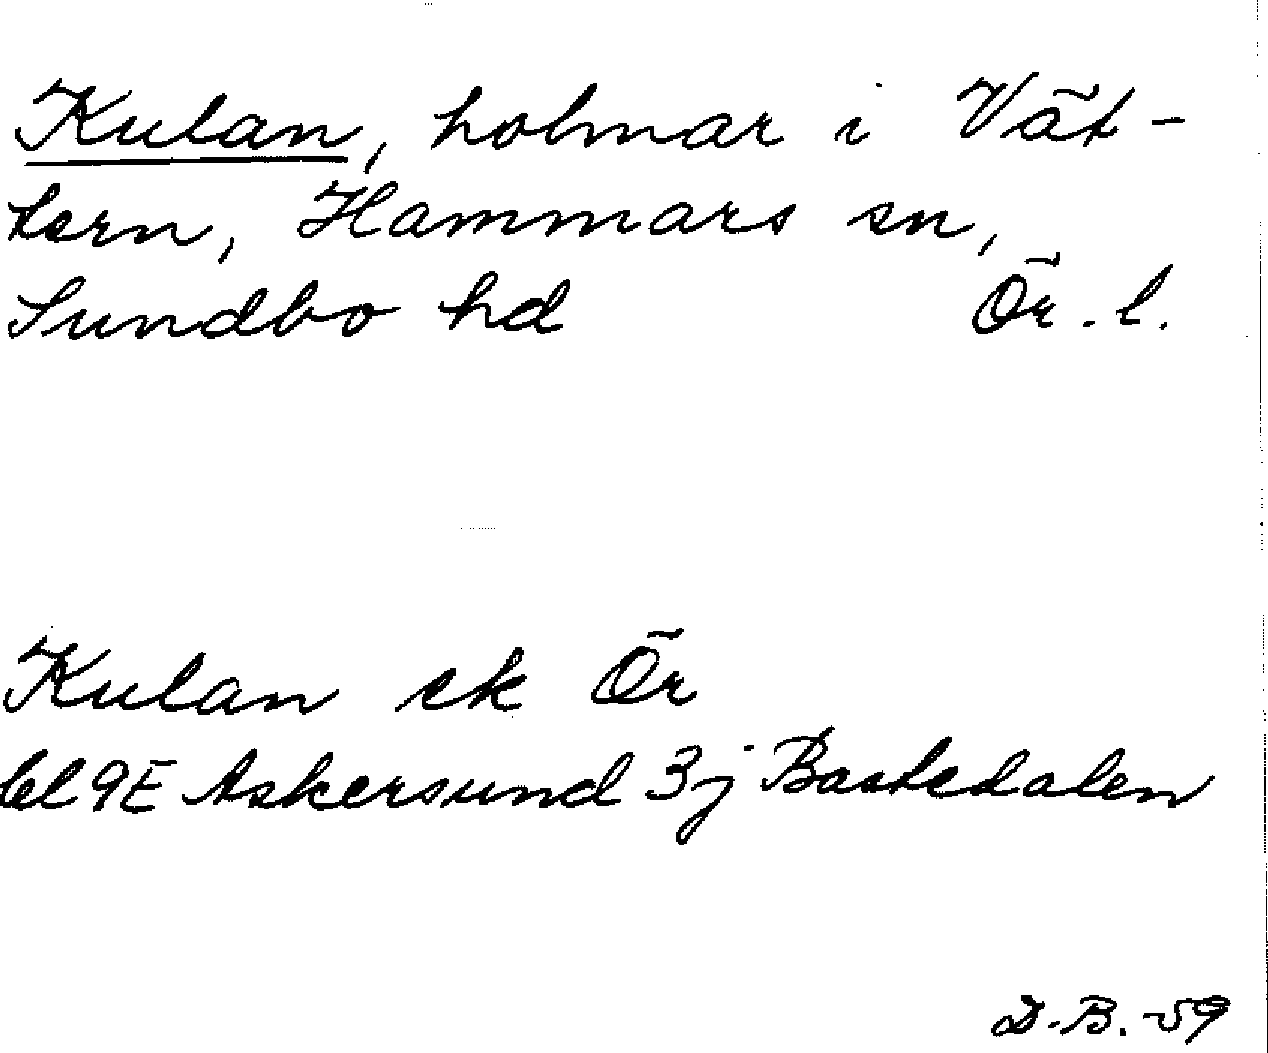 Kulan, holmar i Vät-
tern, Hammars sn,
Sundbo hd Ör. l.
Kulan ek Ör
bl 9E Askersund 3j Bastedalen
D.B. -59